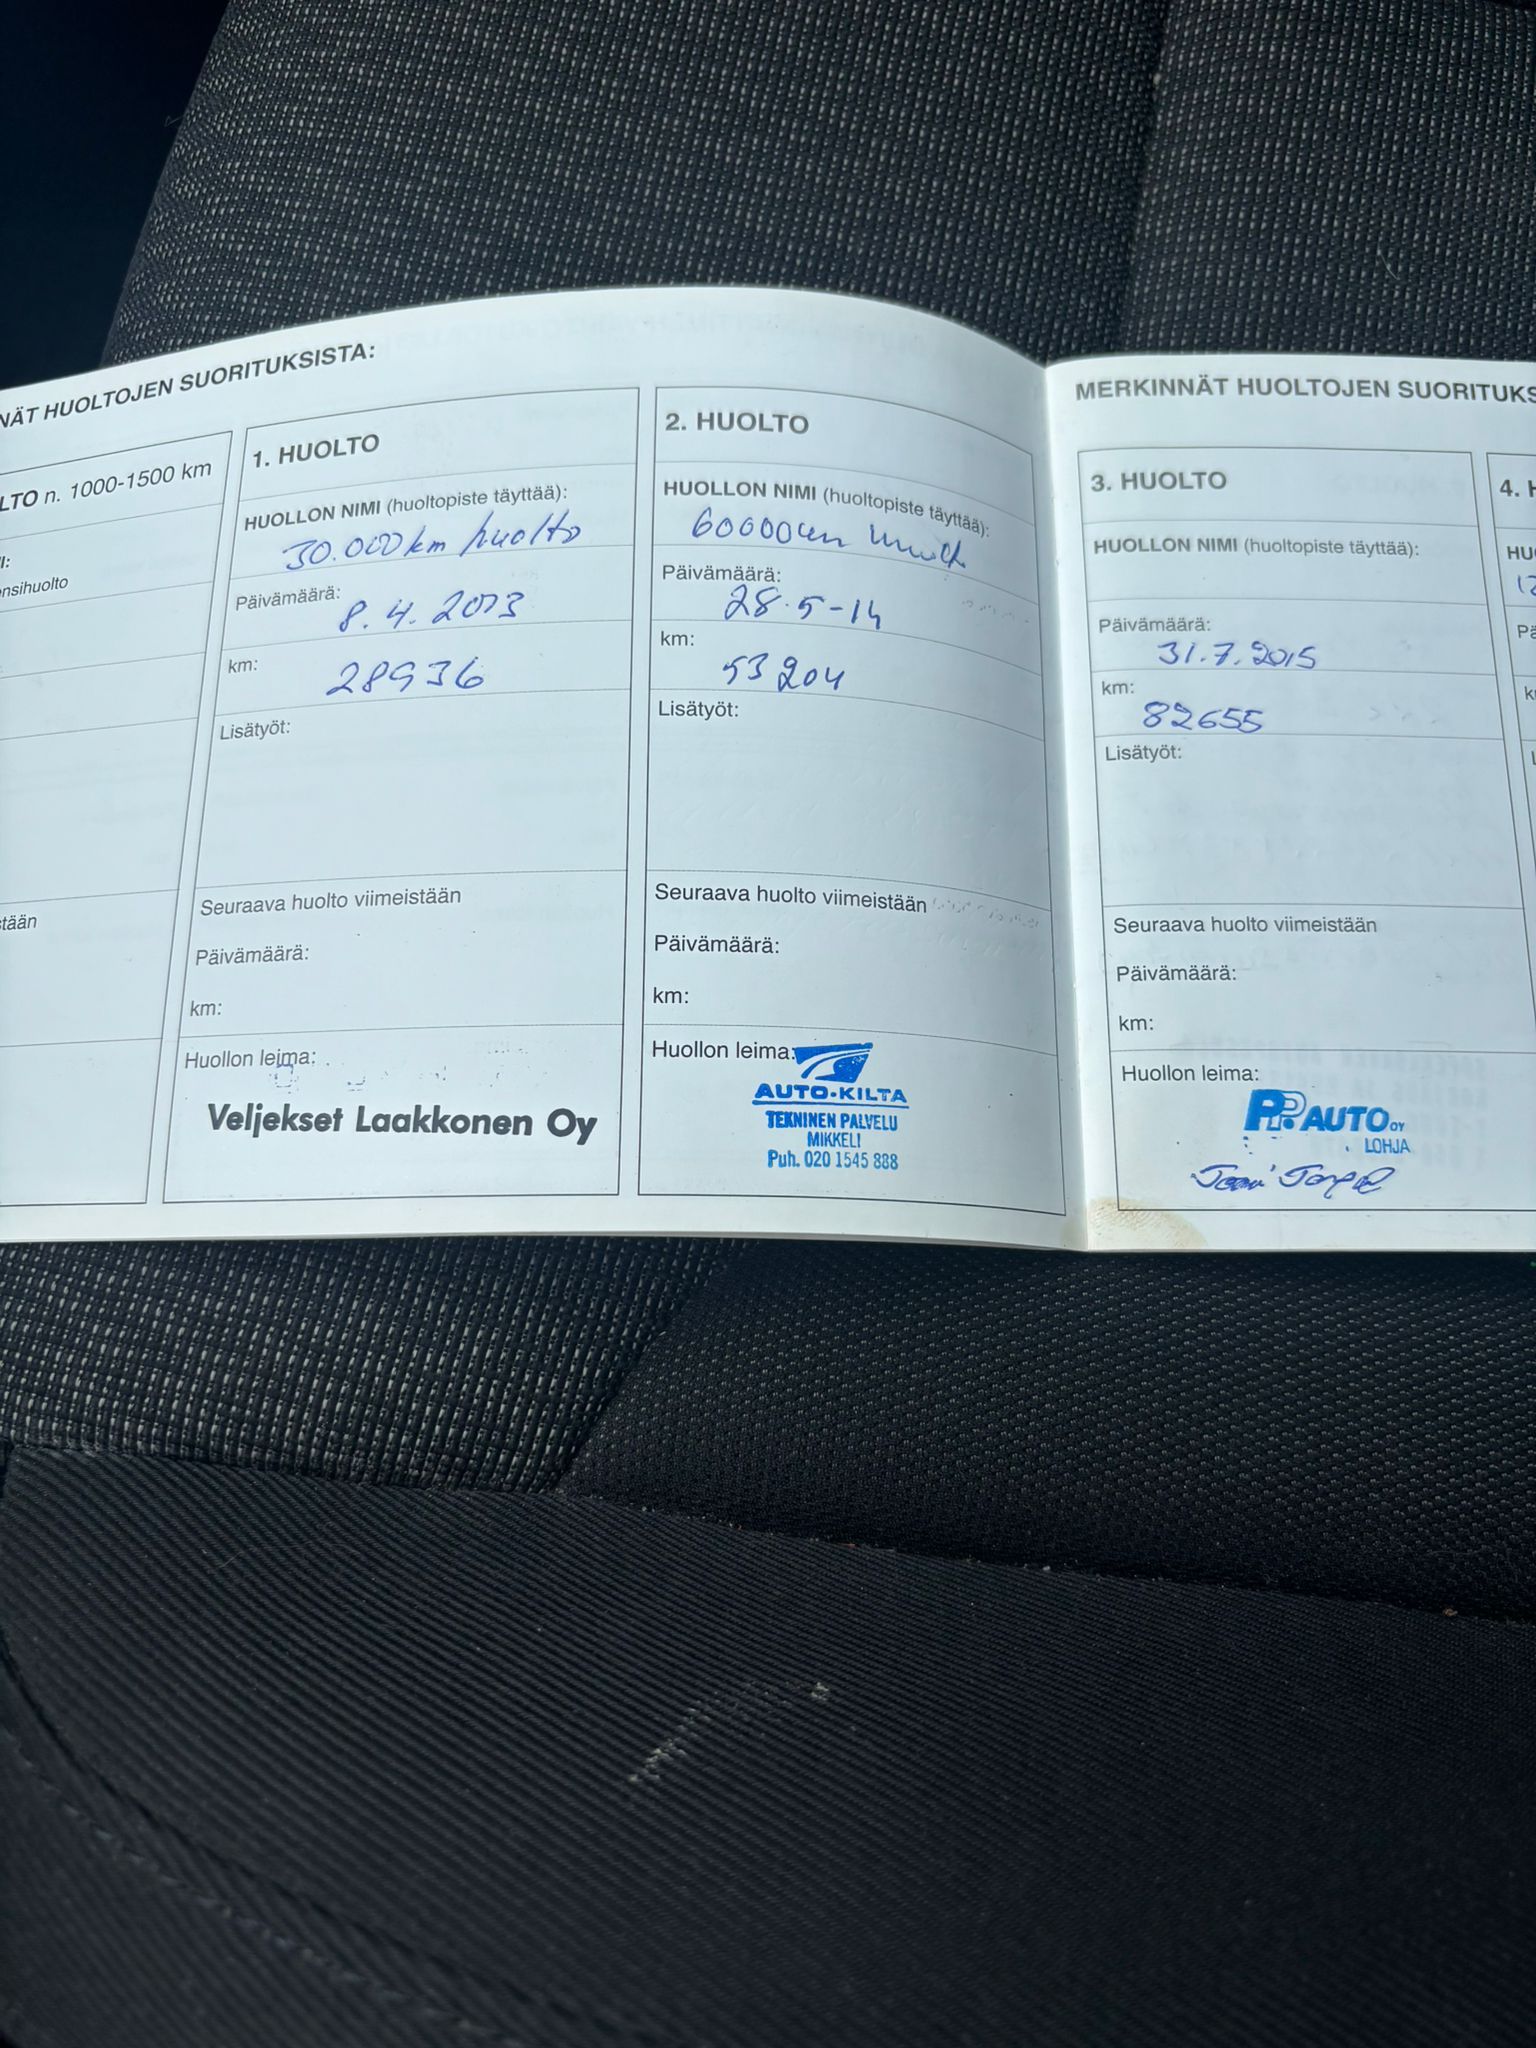 NÄT HUOLTOJEN SUORITUKSISTA:
LTO n. 1000-1500 km
I:
nsihuolto
tään
1. HUOLTO
HUOLLON NIMI (huoltopiste täyttää):
30.000 km huolto
Päivämäärä: 8.4.2013
km: 28936
Lisätyöt:
Seuraava huolto viimeistään
Päivämäärä:
km:
Huollon leima:
Veljekset Laakkonen Oy
2. HUOLTO
HUOLLON NIMI (huoltopiste täyttää):
60000km huolto
Päivämäärä: 28.5-14
km: 53204
Lisätyöt:
Seuraava huolto viimeistään
Päivämäärä:
km:
Huollon leima:
AUTO-KILTA
TEKNINEN PALVELU
MIKKELI
Puh. 020 1545 888
MERKINNÄT HUOLTOJEN SUORITUKS
3. HUOLTO
HUOLLON NIMI (huoltopiste täyttää):
Päivämäärä: 31.7.2015
km: 82655
Lisätyöt:
Seuraava huolto viimeistään
Päivämäärä:
km:
Huollon leima:
PP AUTO OY
LOHJA
4. H
HU
12
Pä
k
L